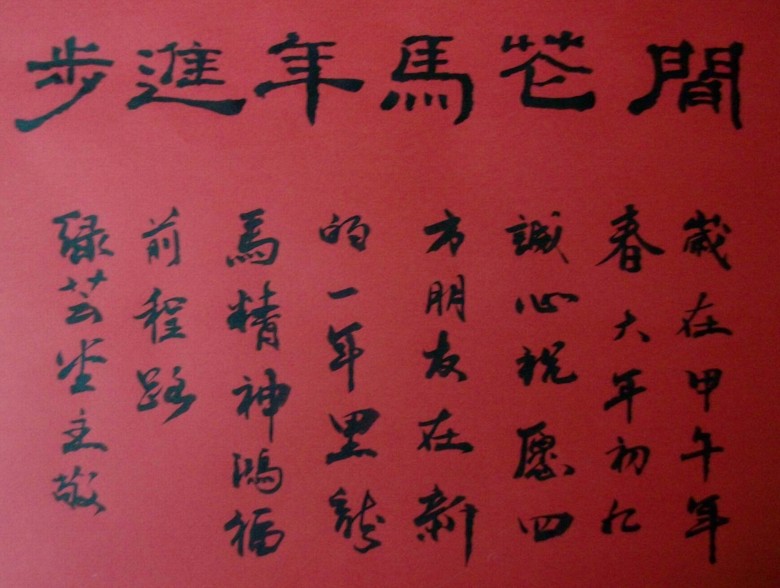 間花馬年進步
歲在甲午年
春大年初九
誠心祝愿四
方朋友在新
的一年里龍
馬精神鴻福
前程路
緑芸堂主敬